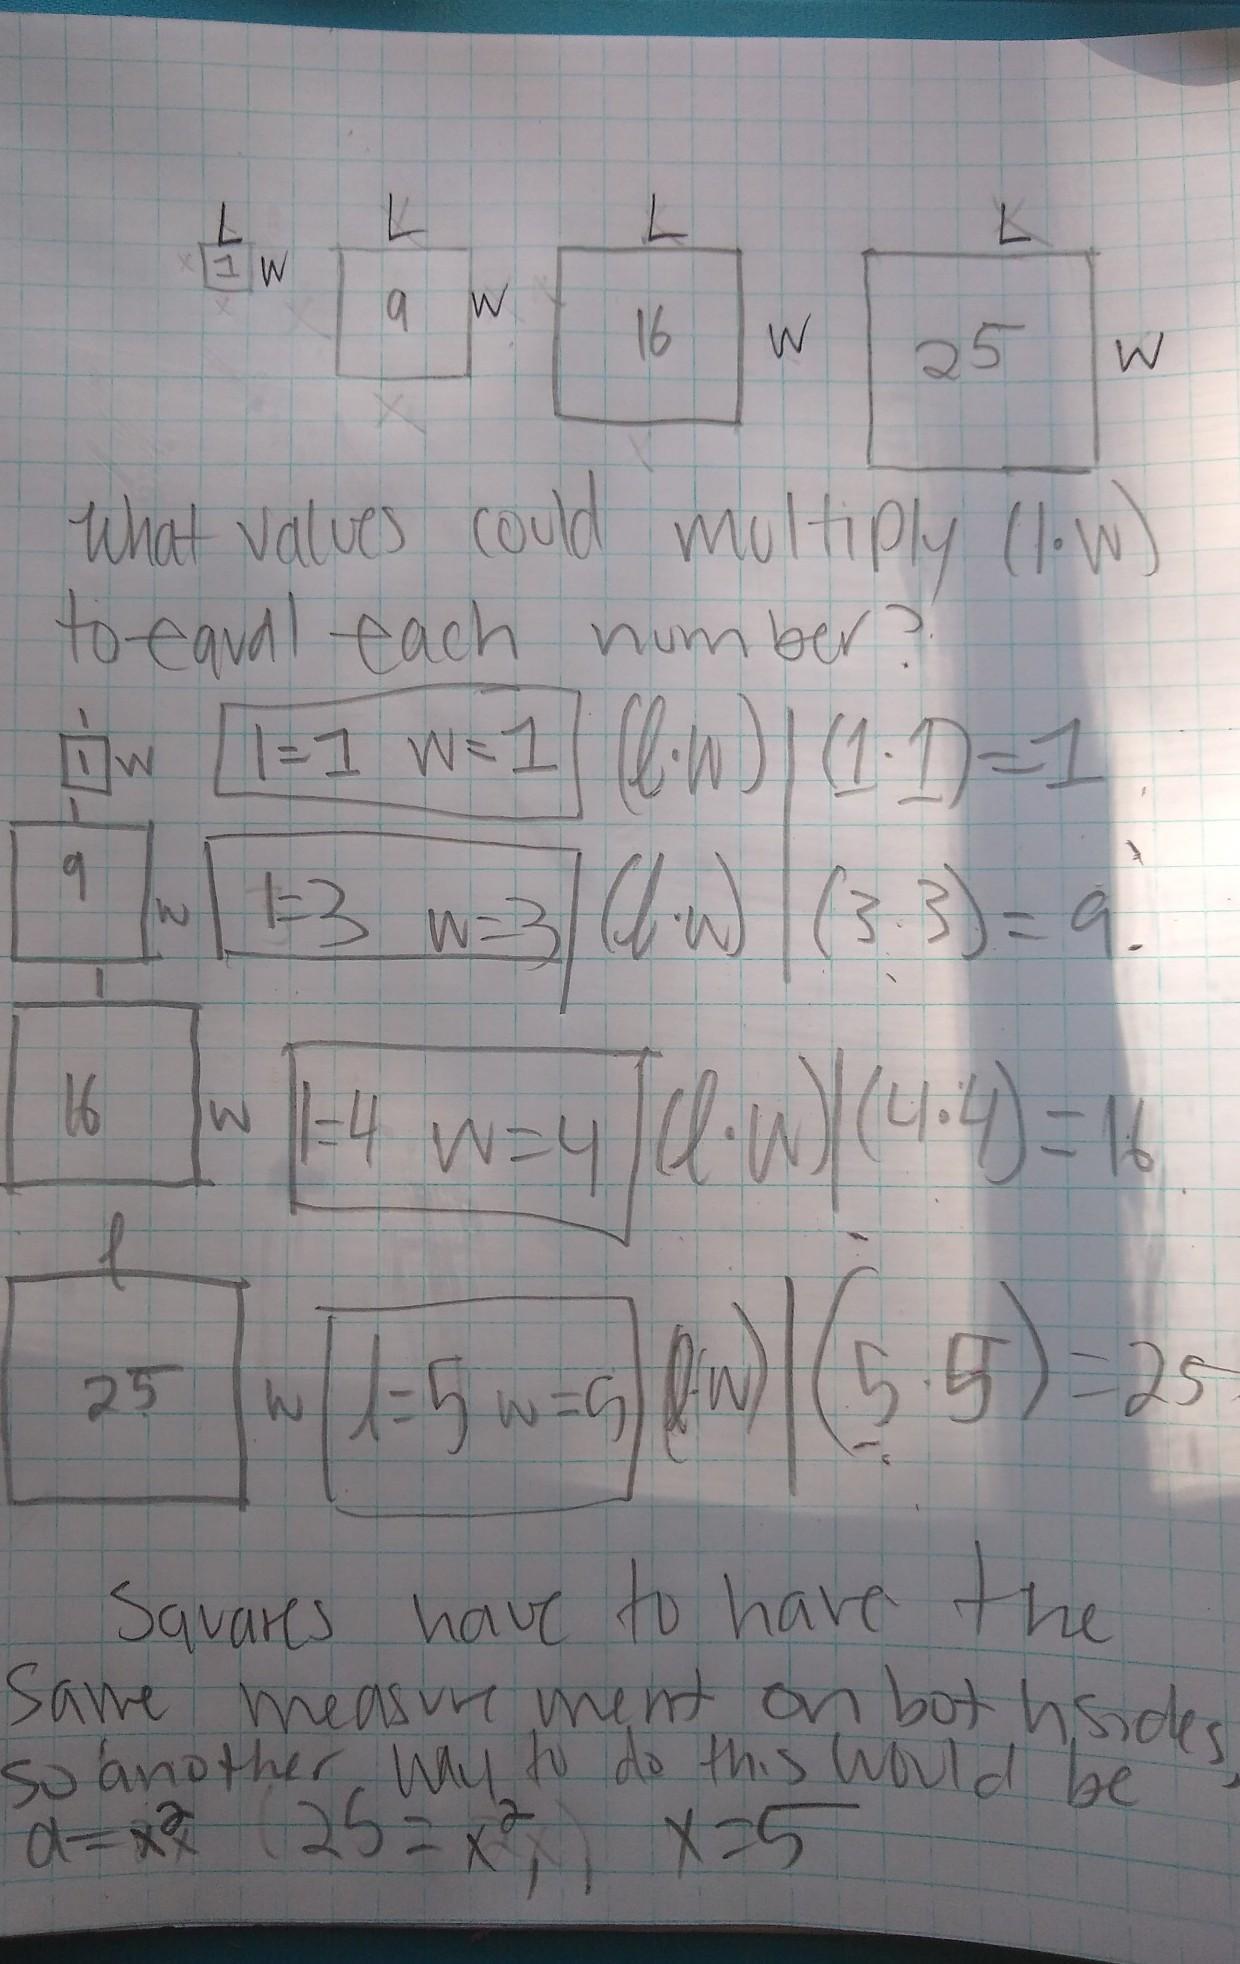 L L L L
1 W 9 W 16 W 25 W
What values could multiply (l·w)
to equal each number?
l
1 w l=1 w=1 (l·w) | (1·1)=1
l
9 w l=3 w=3 (l·w) | (3·3)=9
l
16 w l=4 w=4 (l·w) | (4·4)=16
l
25 w l=5 w=5 (l·w) | (5·5)=25
Squares have to have the
same measurement on both sides,
so another way to do this would be,
a=x² (25=x²,) x=5